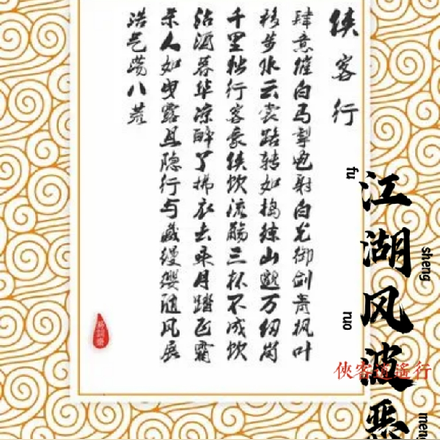 侠客行
肆意催白马掣电射白光御剑青枫叶
移步水云裳路转如捣练山巅万仞岗
千里独行客豪侠饮流觞三杯不成饮
沽酒暮华凉醉了拂衣去乘月踏飞霜
杀人如曳露且隐行与藏缦缨随风展
浩气荡八荒
江湖风波恶
fu
sheng
ruo
meng
俠客逍遥行